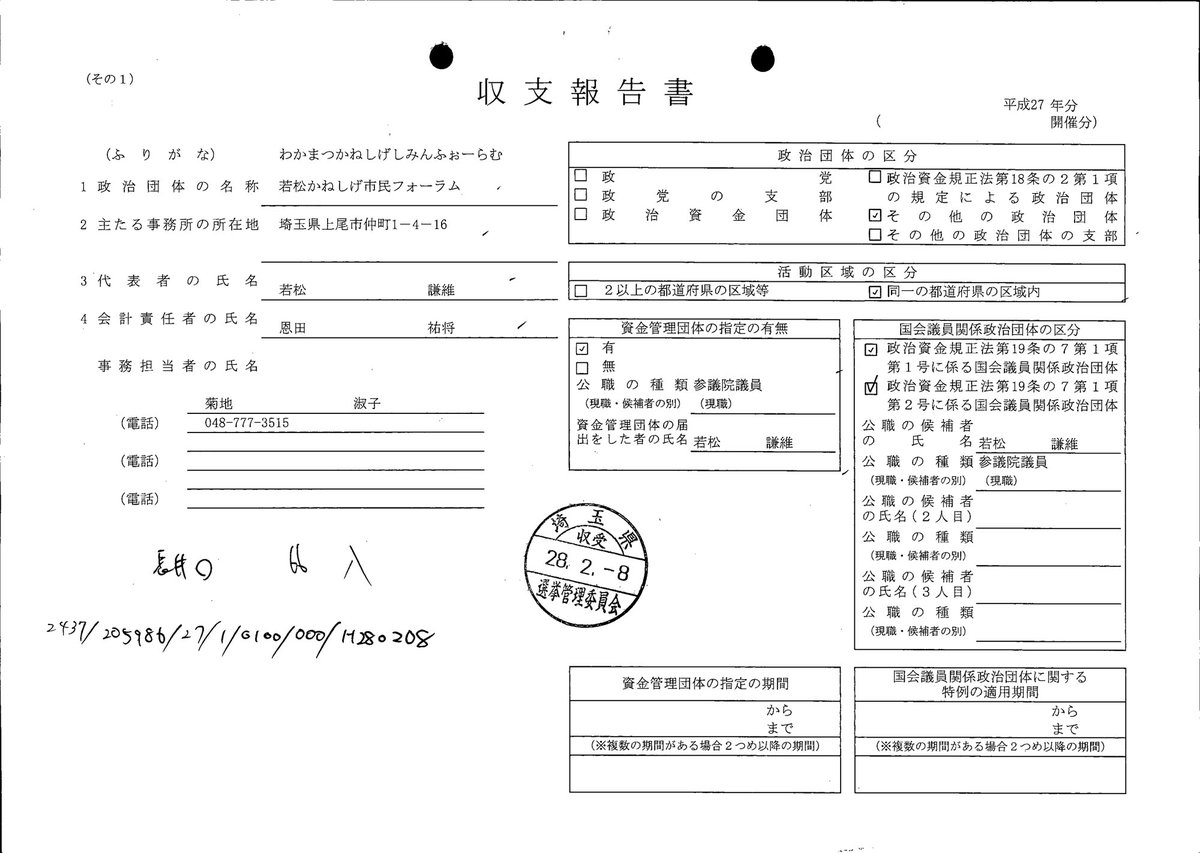 (その1)
収支報告書
平成27 年分
( 開催分)
(ふりがな) わかまつかねしげしみんふぉーらむ
1 政治団体の名称 若松かねしげ市民フォーラム
2 主たる事務所の所在地 埼玉県上尾市仲町1-4-16
3 代表者の氏名 若松 謙維
4 会計責任者の氏名 恩田 祐将
事務担当者の氏名
菊地 淑子
(電話) 048-777-3515
(電話)
(電話)
政治団体の区分
□ 政党
□ 政党の支部
□ 政治資金団体
□ 政治資金規正法第18条の2第1項
の規定による政治団体
☑ その他の政治団体
□ その他の政治団体の支部
活動区域の区分
□ 2以上の都道府県の区域等 ☑ 同一の都道府県の区域内
資金管理団体の指定の有無
☑ 有
□ 無
公職の種類 参議院議員
(現職・候補者の別) (現職)
資金管理団体の届
出をした者の氏名 若松 謙維
国会議員関係政治団体の区分
☑ 政治資金規正法第19条の7第1項
第1号に係る国会議員関係政治団体
☑ 政治資金規正法第19条の7第1項
第2号に係る国会議員関係政治団体
公職の候補者
の氏名 若松 謙維
公職の種類 参議院議員
(現職・候補者の別) (現職)
公職の候補者
の氏名(2人目)
公職の種類
(現職・候補者の別)
公職の候補者
の氏名(3人目)
公職の種類
(現職・候補者の別)
埼玉県
収受
28. 2. -8
選挙管理委員会
2437/205986/27/1/0100/000/H280208
資金管理団体の指定の期間
から
まで
(※複数の期間がある場合2つめ以降の期間)
国会議員関係政治団体に関する
特例の適用期間
から
まで
(※複数の期間がある場合2つめ以降の期間)